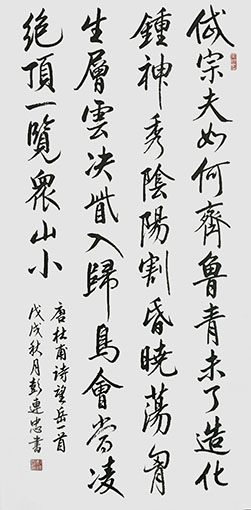 岱宗夫如何齊魯青未了造化
鍾神秀陰陽割昏曉蕩胷
生層雲决眥入歸鳥會當凌
絕頂一覽眾山小
唐杜甫詩望岳一首
戊戌秋月彭連忠書